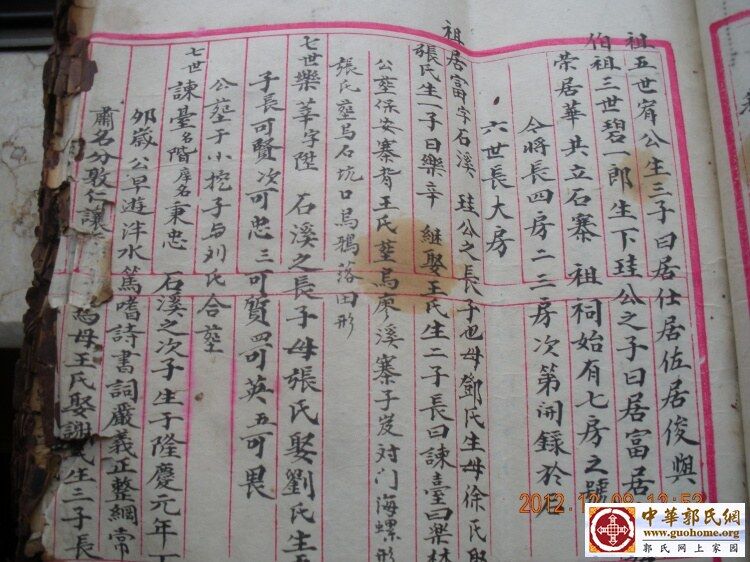 祖五世寗公生三子曰居仕居佐居俊與
伯祖三世碧一郎生下珪公之子曰居富居
荣居華共立石寨祖祠始有七房之號
今將長四房二三房次第開錄於后
六世長大房
祖居富字石溪 珪公之長子也母鄧氏生母徐氏
張氏生一子曰樂辛 継娶王氏生二子長曰諫臺曰樂
公塟保安寨背王氏塟烏廖溪寨子岌对门海螺形
張氏塟烏石坑口烏鵝落田形
七世樂莘字陞 石溪之長子母張氏娶劉氏生五
子長可賢次可忠三可贤四可英五可畏
公塟于小挖子与刘氏合塟
七世諫臺名階庠名秉忠 石溪之次子生于隆慶元年丁
卯歲公早遊泮水篤嗜詩書詞嚴義正整綱常
肅名分敦仁讓 母王氏娶謝氏生二子長
2012.12.09 13:52
中華郭氏網
www.guohome.org
郭氏网上家园